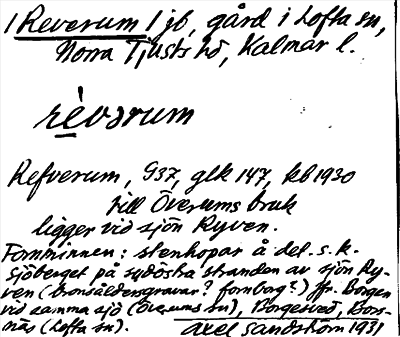 /Reverum/ jb, gård i Lofta sn,
Norra Tjusts hd, Kalmar l.
révərum
Refverum, G37, glk 147, kb 1930
till Överums bruk
ligger vid sjön Ryven.
Fornminnen: stenhopar å del. s. k.
sjöberget på sydöstra stranden av sjön Ry-
ven (bronsåldersgravar? fornborg?) Jfr. Borgen
vid samma sjö (Överums sn), Borgesved, Bors-
näs (Lofta sn).
Axel Sandström 1931